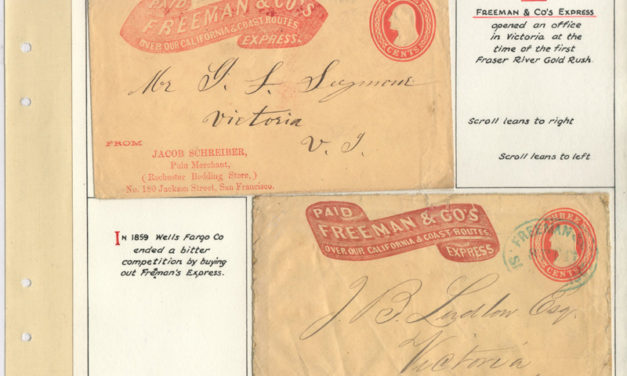 PAID
FREEMAN & CO'S
OVER OUR CALIFORNIA & COAST ROUTES
EXPRESS.
CENTS
Mr
Seymour
Victoria
V. I.
FROM
JACOB SCHREIBER,
Pulu Merchant,
(Rochester Bedding Store,)
No. 180 Jackson Street, San Francisco.
FREEMAN & CO'S EXPRESS
opened an office
in Victoria at the
time of the first
Fraser River Gold Rush.
Scroll leans to right
Scroll leans to left
IN 1859 Wells Fargo Co
ended a bitter
competition by buying
out Freman's Express.
PAID
FREEMAN & CO'S
OVER OUR CALIFORNIA & COAST ROUTES
EXPRESS
THREE
CENTS
FREEMAN
J. B. Ludlow Esq.
Victoria